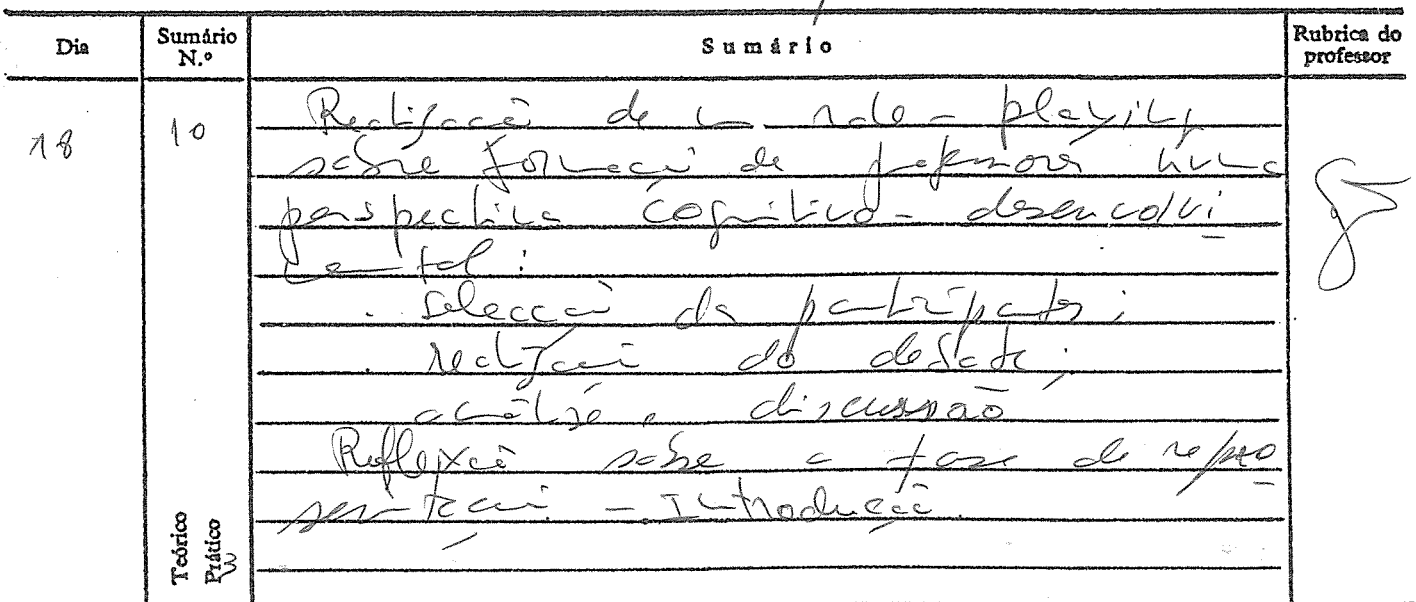 Dia Sumário N.º Sumário Rubrica do professor
18 10 Realização de um role-playing
sobre formação de professores numa
perspectiva cognitivo-desenvolvi
mental:
. Selecção dos participantes;
. realização do debate;
análise e discussão
Reflexão sobre a fase de repre
sentação - Introdução.
Teórico
Prático